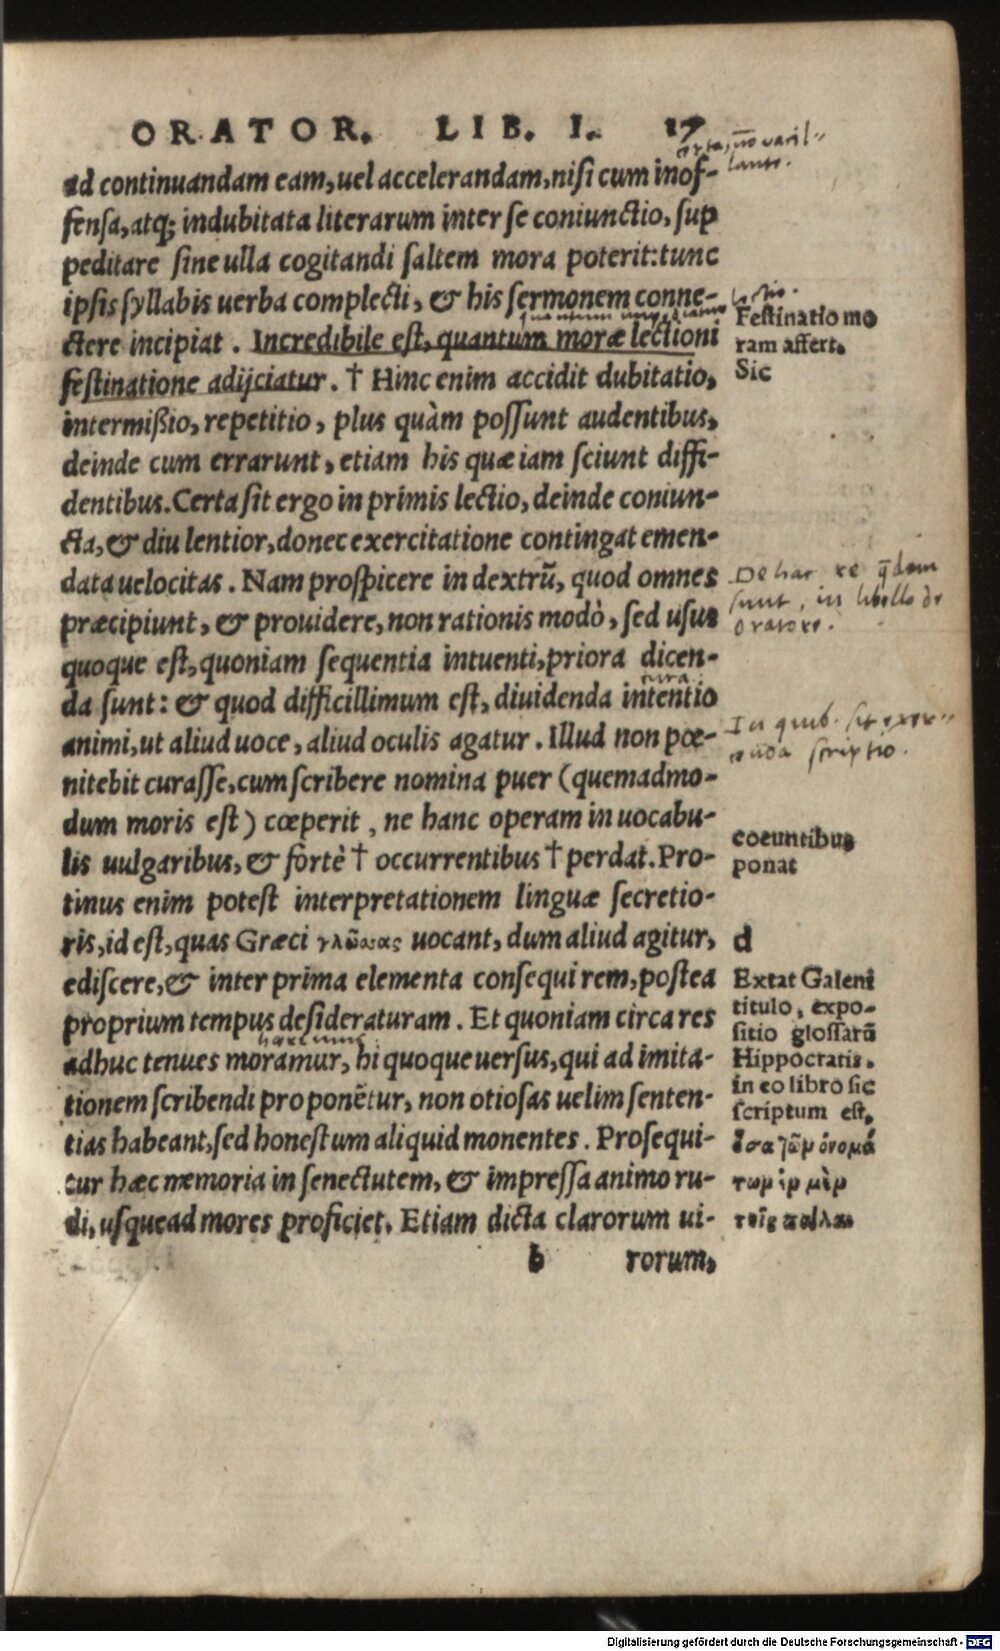 ORATOR. LIB. I. 17
ad continuandam eam, uel accelerandam, nisi cum inof-
fensa, atq; indubitata literarum inter se coniunctio, sup
peditare sine ulla cogitandi saltem mora poterit: tunc
ipsis syllabis uerba complecti, & his sermonem conne-
ctere incipiat. Incredibile est, quantum moræ lectioni
festinatione adijciatur. † Hinc enim accidit dubitatio,
intermißio, repetitio, plus quàm possunt audentibus,
deinde cum errarunt, etiam his quæ iam sciunt diffi-
dentibus. Certa sit ergo in primis lectio, deinde coniun-
cta, & diu lentior, donec exercitatione contingat emen-
data uelocitas. Nam prospicere in dextrũ, quod omnes
præcipiunt, & prouidere, non rationis modò, sed usus
quoque est, quoniam sequentia intuenti, priora dicen-
da sunt: & quod difficillimum est, diuidenda intentio
animi, ut aliud uoce, aliud oculis agatur. Illud non pœ-
nitebit curasse, cum scribere nomina puer (quemadmo-
dum moris est) cœperit, ne hanc operam in uocabu-
lis uulgaribus, & fortè † occurrentibus † perdat. Pro-
tinus enim potest interpretationem linguæ secretio-
ris, id est, quas Græci γλῶσσας uocant, dum aliud agitur,
ediscere, & inter prima elementa consequi rem, postea
proprium tempus desideraturam. Et quoniam circa res
adhuc tenues moramur, hi quoque uersus, qui ad imita-
tionem scribendi proponẽtur, non otiosas uelim senten-
tias habeant, sed honestum aliquid monentes. Prosequi-
tur hæc memoria in senectutem, & impressa animo ru-
di, usque ad mores proficiet. Etiam dicta clarorum ui-
b rorum,
certa, nõ vacil-
lante.
lectio.
Festinatio mo
ram affert.
Sic
De hac re q̃dam
sunt, in libello de
oratore.
In quib. sit exer-
scriptio.
coeuntibus
ponat
d
Extat Galeni
titulo, expo-
sitio glossarũ
Hippocratis.
in eo libro sic
scriptum est,
ὅσα τῶν ὀνομά
των ἐν μὲν
τοῖς πάλαι